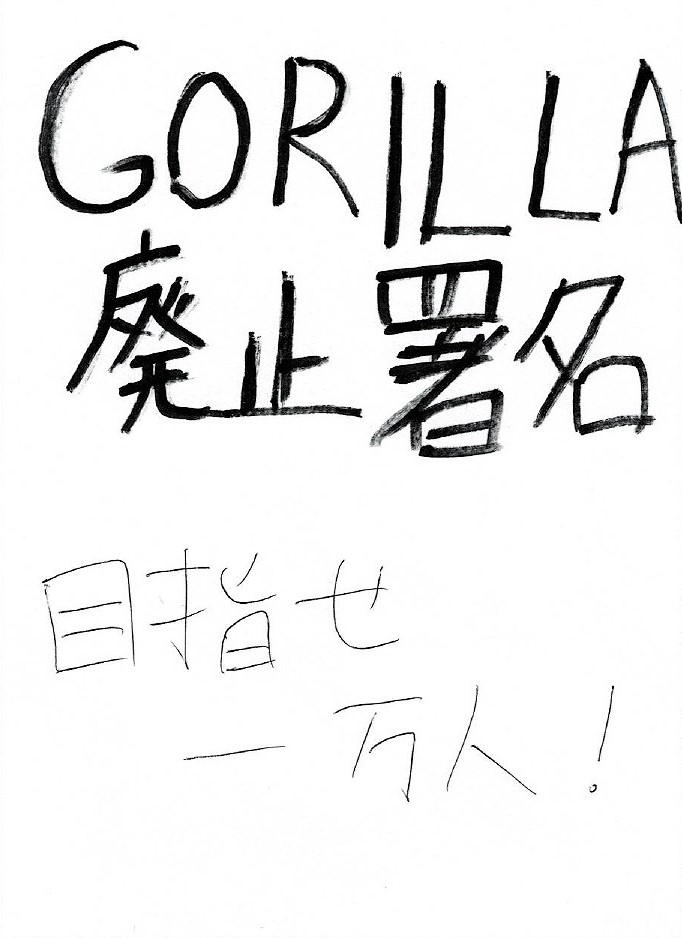 GORILLA
廃止署名
目指せ
一万人!